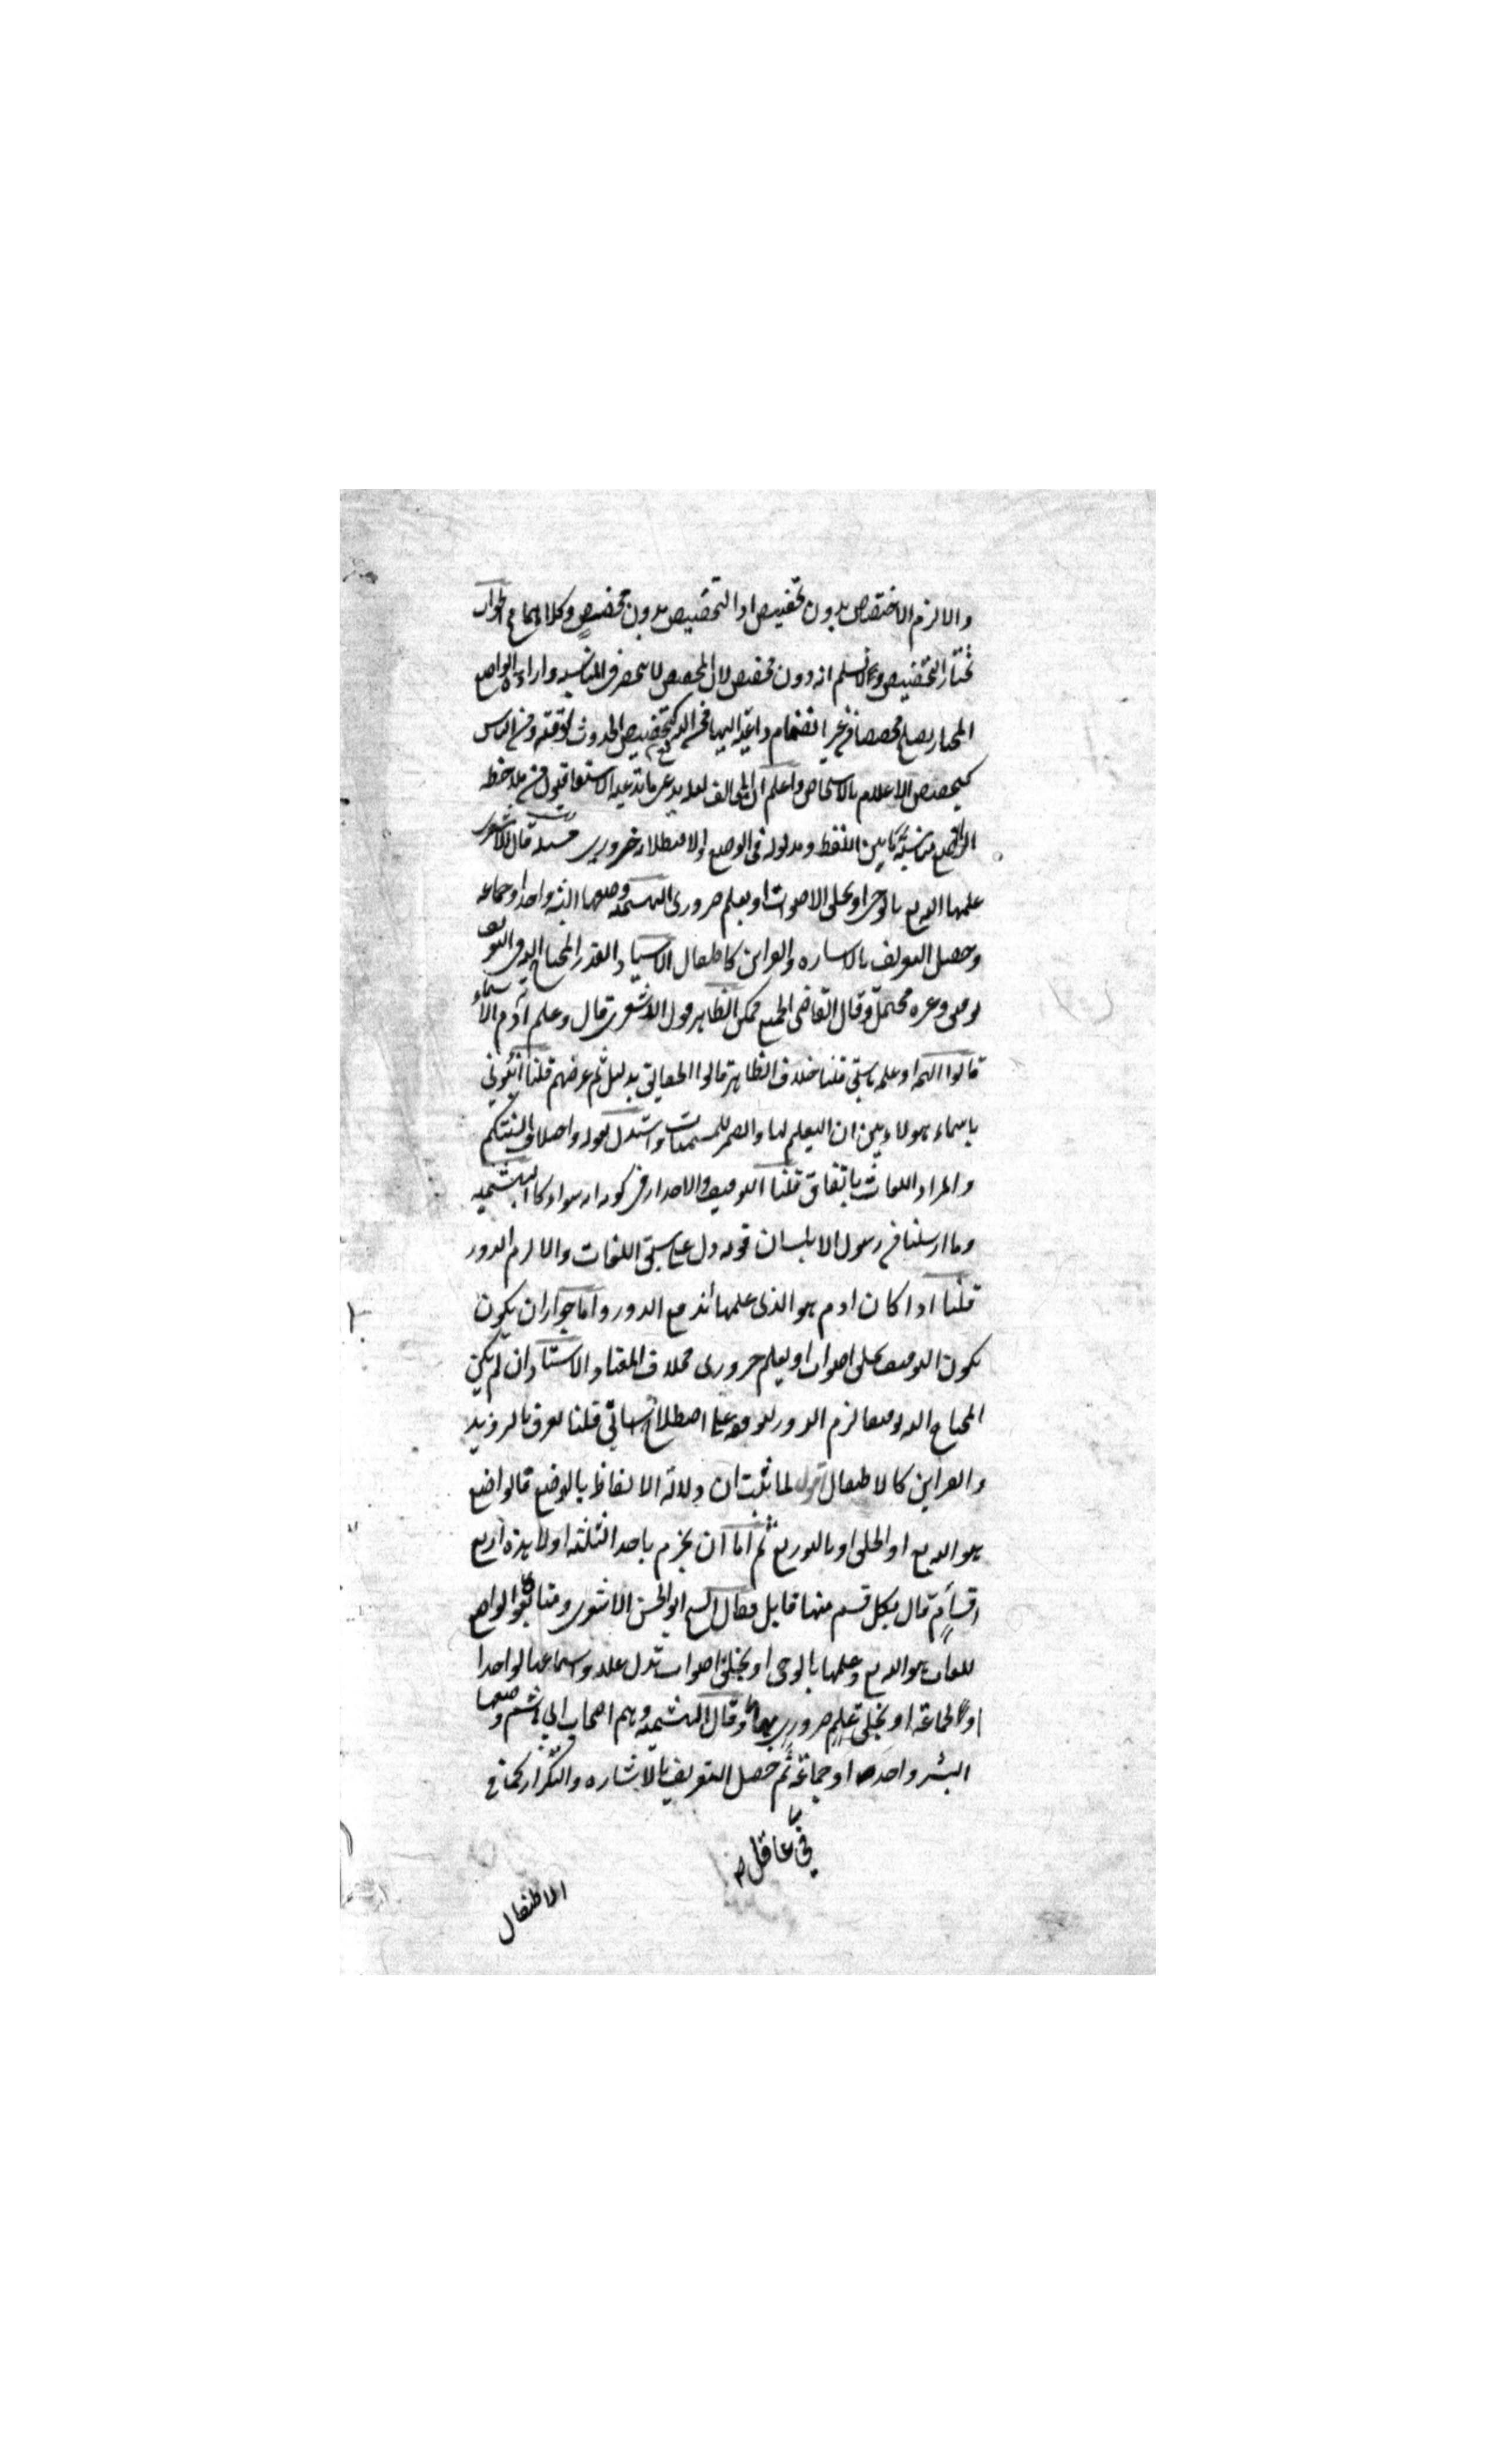 والا لزم الاختصاص بدون تخصيص او التخصيص بدون مخصص وكلاهما مح الجواب
نختار التخصيص ولا نسلم انه دون مخصص لان المخصص لا ينحصر في المناسبه وارادة الواضع
المختار يصلح مخصصا من غير انضمام داعية اليها فمن الله كتخصيص الحدوث بوقته ومن الناس
كتخصيص الاعلام بالاشخاص واعلم ان المخالف لعله يدعى ما تدعيه الاشتقاقيون من ملاحظه
الواضع مناسبة ما بين اللفظ ومدلوله في الوضع والا فبطلانه ضروري مسئله قال الاشعري
علمها الله تع بالوحى او بخلق الاصوات او بعلم ضرورى البهشمية وضعها البشر واحدا وجماعه
وحصل التعريف بالاشاره والقراين كاطفال الاستاد القدر المحتاج اليه في التعريف
توقيفى وغيره محتمل وقال القاضى الجميع ممكن الظاهر قول الاشعرى قال وعلم ادم الاسماء
قالوا الهمه او علمه ما سبق قلنا خلاف الظاهر قالوا الحقايق بدليل ثم عرضهم قلنا انبئوني
باسماء هولاء يبين ان التعليم لها والضمير للمسميات واستدل بقوله واختلاف السنتكم
والمراد اللغات باتفاق قلنا التوقيف والاقدار في كونه اية سواء كا البهشميه
وما ارسلنا من رسول الا بلسان قومه دل على سبق اللغات والا لزم الدور
قلنا اذا كان ادم هو الذى علمها اندفع الدور واما جواز ان يكون
يكون التوقيف بخلق اصوات او بعلم ضرورى فخلاف المعتاد الاستاد ان لم يكن
المحتاج اليه توقيفا لزم الدور لتوقفه على اصطلاح سابق قلنا يعرف بالترديد
والقراين كالاطفال قوله لما ثبت ان دلالة الالفاظ بالوضع فالواضع
هو الله تع او الخلق او بالتوزيع ثم اما ان يجزم باحد الثلثه اولا هذه اربع
اقسام قال بكل قسم منها قايل فقال الشيخ ابو الحسن الاشعرى ومتابعوه الواضع
للغات هو الله تع وعلمها بالوحى او بخلق اصوات تدل عليه واسماعها لواحد
او لجماعة او بخلق علم ضروري بها وقال البهشميه وهم اصحاب ابي هاشم وضعها
البشر واحد او جماعة ثم حصل التعريف بالاشاره والتكرار كما في
في عاقل
الاطفال